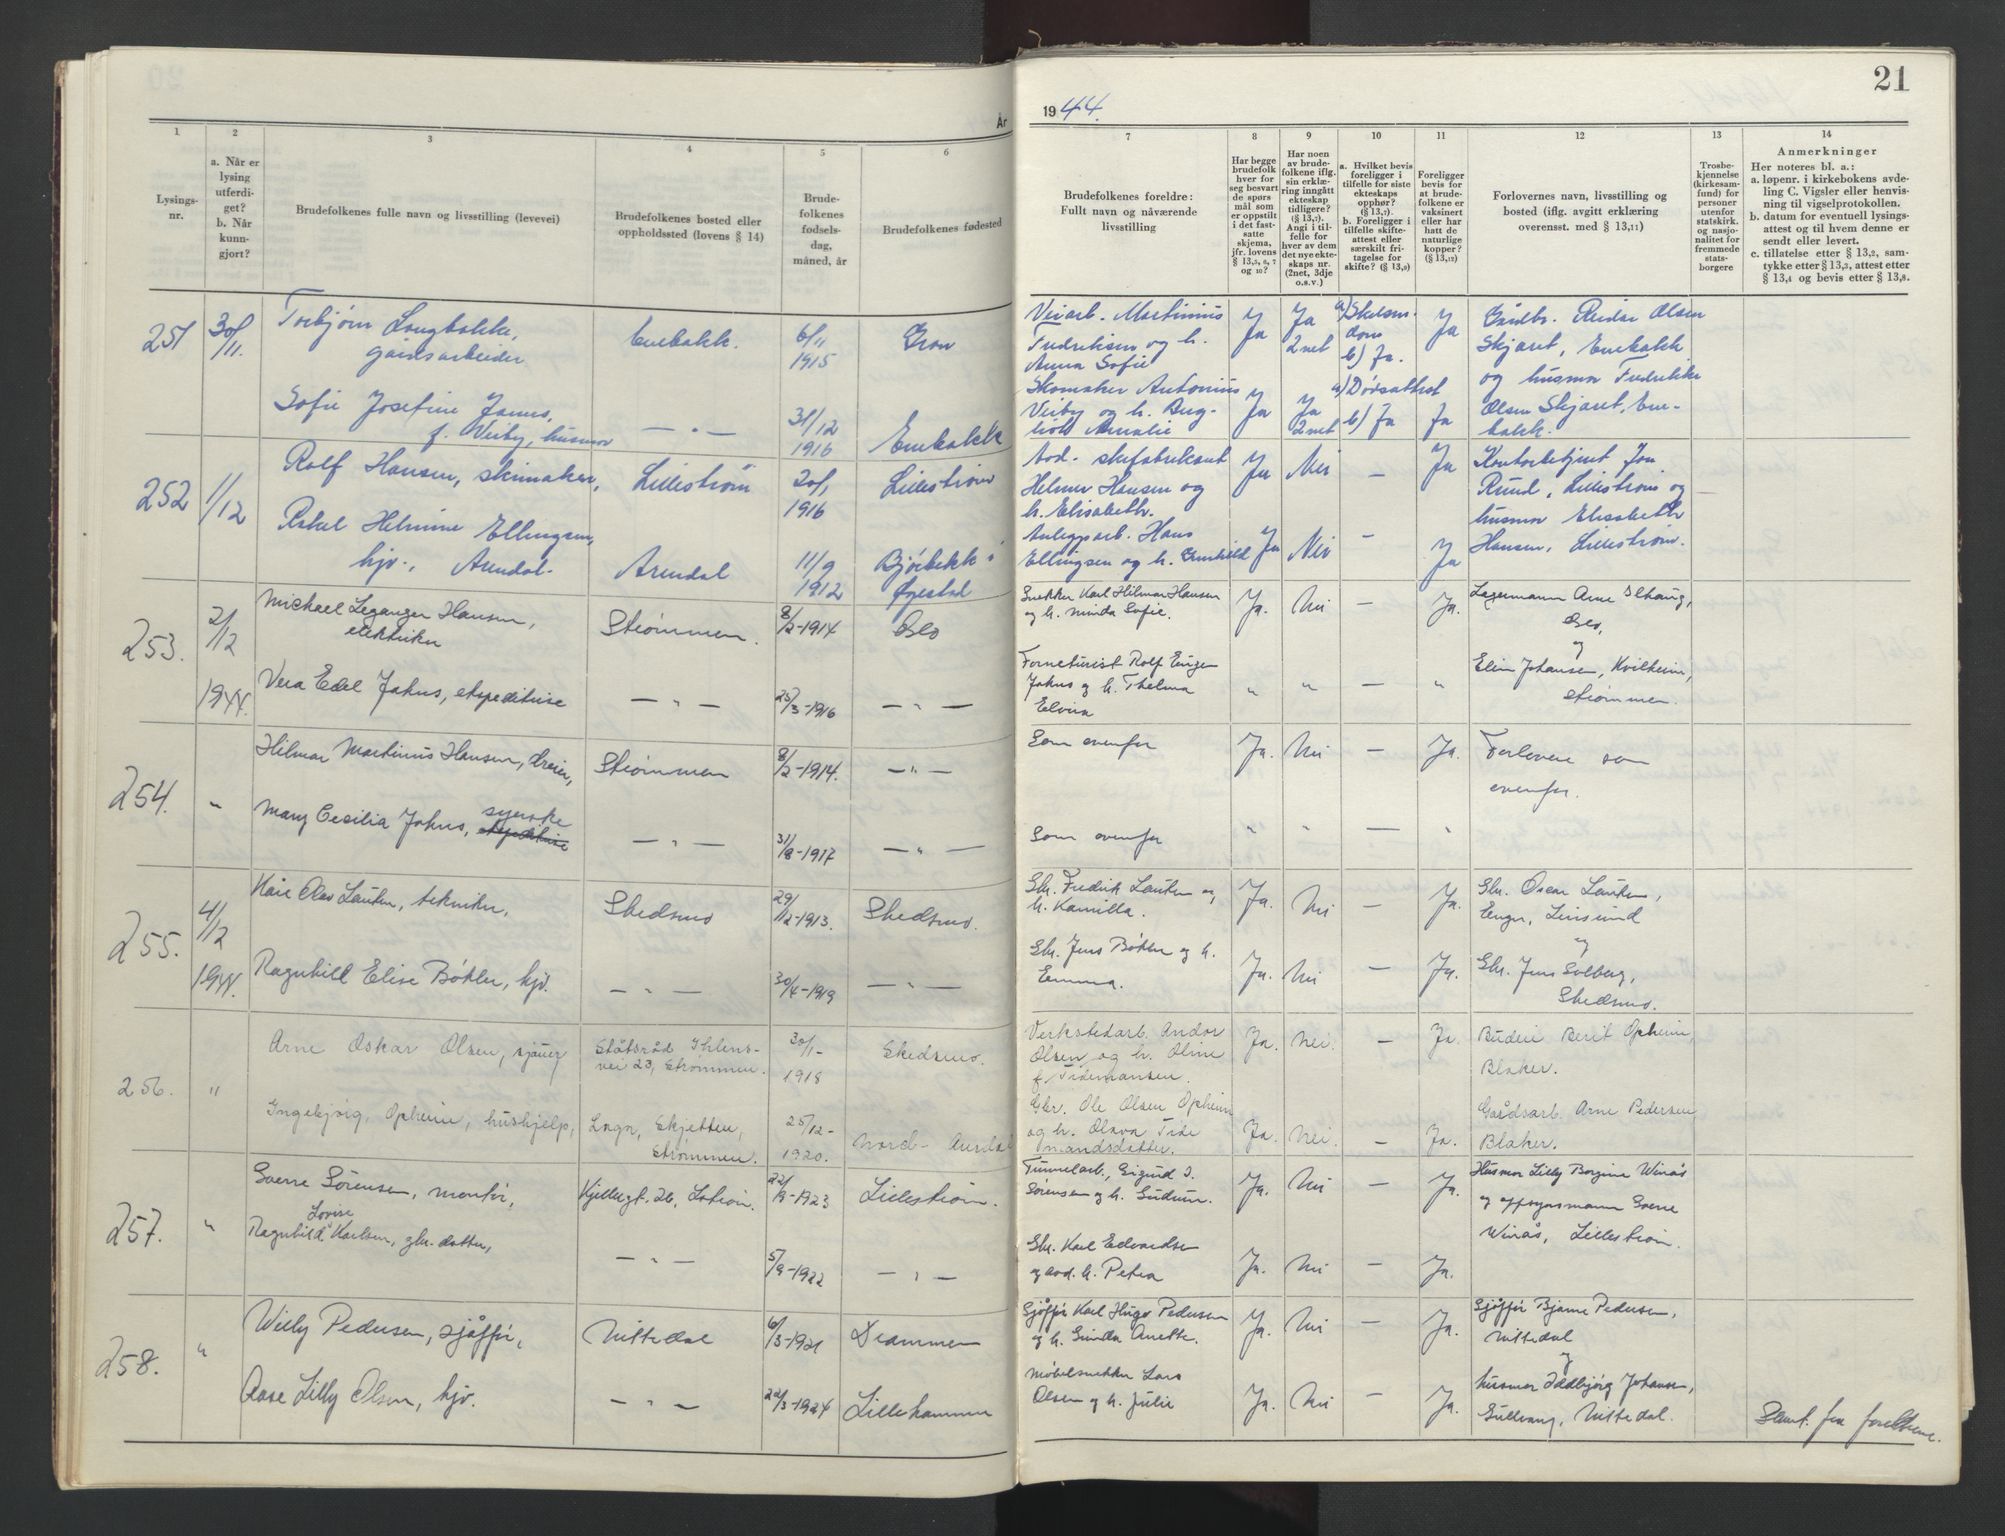 År
1
2
3
4
5
6
Lysings-
nr.
a. Når er
lysing
utferdi-
get?
b. Når
kunn-
gjort?
Brudefolkenes fulle navn og livsstilling (levevei)
Brudefolkenes bosted eller
oppholdssted (lovens § 14)
Brude-
folkenes
fødsels-
dag,
måned, år
Brudefolkenes fødested
251
30/11.
Torbjørn Langbakke,
gårdsarbeider
Enebakk.
6/11
1915
Gran
Sofie Josefine James,
f. Veiby, husmor
— " —
31/12
1916
Enebakk
252
1/12
Rolf Hansen, skimaker,
Lillestrøm
20/1
1916
Lillestrøm
Rakel Helmine Ellingsen,
hjv., Arendal.
Arendal
11/9
1912
Bjorbekk i
Øyestad
253.
2/12
1944.
Michael Leganger Hansen,
elektriker
Strømmen.
8/2-1914
Oslo
Vera Edel Jahns, ekspeditrise
— " —
25/3-1916
— " —
254.
"
Hilmar Martinius Hansen, dreier,
Strømmen
8/2-1914.
— " —
Mary Cecilia Jahns, syerske
ekspeditrise
— " —
31/8-1917
— " —
255.
4/12
1944.
Kåre Olav Lauten, tekniker,
Skedsmo
29/12-1913.
Skedsmo.
Ragnhild Elise Bøhler, hjv.
— " —
30/4-1919
— " —
256.
"
Arne Oskar Olsen, sjåuer
Statsråd Ihlens-
vei 23, Strømmen.
30/1-
1918
Skedsmo.
Ingebjørg Opheim, hushjelp,
Lagn, Skjetten,
Strømmen.
25/12-
1920.
Nord-Aurdal
257.
"
Sverre Sørensen, montør,
Kjellergt. 26, L.strøm.
22/9-1923
Lillestrøm.
Lovise
Ragnhild Karlsen, gbr. datter,
— " —
5/9-1922
— " —
258.
"
Willy Pedersen, sjåffør,
Nittedal
6/3-1921
Drammen
Aase Lilly Olsen, hjv.
— " —
22/3-1924
Lillehammer
21
1944.
7
8
9
10
11
12
13
14
Brudefolkenes foreldre:
Fullt navn og nåværende
livsstilling
Har begge
brudefolk
hver for
seg besvart
de spørs-
mål som
er oppstilt
i det fast-
satte
skjema,
jfr. lovens
§ 13,5, 6, 7
og 10?
Har noen
av brude-
folkene iflg.
sin erklæ-
ring inngått
ekteskap
tidligere?
(§ 13,7).
Angi i til-
felle for
hver av dem
det nye ekte-
skaps nr.
(2net, 3dje
o.s.v.)
a. Hvilket bevis
foreligger i
tilfelle for siste
ekteskaps
opphør?
(§ 13,7).
b. Foreligger i
tilfelle skifte-
attest eller
særskilt fri-
tagelse for
skifte? (§ 13,9)
Foreligger
bevis for
at brude-
folkene er
vaksinert
eller har
hatt de
naturlige
kopper?
(§ 13,12)
Forlovernes navn, livsstilling og
bosted (iflg. avgitt erklæring
overensst. med § 13,11)
Trosbe-
kjennelse
(kirkesam-
fund) for
personer
utenfor
statskirk.
og nasjo-
nalitet for
fremmede
stats-
borgere
Anmerkninger
Her noteres bl. a.:
a. løpenr. i kirkebokens avde-
ling C. Vigsler eller henvis-
ning til vigselprotokollen.
b. datum for eventuell lysings-
attest og til hvem denne er
sendt eller levert.
c. tillatelse etter § 13,2, sam-
tykke etter § 13,3, attest etter
§ 13,4 og bevis etter § 13,8.
Veiarb. Martinius
Fredriksen og h.
Anna Sofie
Ja
Ja
2net
a) Skilsm.
dom
b) Ja.
Ja
Gårdbr. Reidar Olsen
Skjaret, Enebakk
og husmor Fredrikke
Olsen Skjaret, Ene-
bakk.
Skomaker Antonius
Veiby og h. Berg-
liot Amalie
Ja
Ja
2net
a) Dødsattest
b) Ja
Ja
Avd. skifabrikant
Helmer Hansen og
h. Elisabeth.
Ja
Nei
—
Ja
Kontorbetjent Jon
Ruud, Lillestrøm og
husmor Elisabeth
Hansen, Lillestrøm.
—
Anleggsarb. Hans
Ellingsen og h. Gunhild
Ja
Nei
—
Ja
Snekker Karl Hilmar Hansen
og h. Minda Sofie.
Ja.
Nei
—
Ja.
Lagermann Arne Ilhaug,
Oslo,
og
Elin Johansen, Kvilheim,
Strømmen.
Rolf Eugen
Jahns og h. Thelma
Elvira
"
"
—
"
Som ovenfor
Ja.
Nei
—
Ja.
Forlovere som
ovenfor.
Som ovenfor
"
"
—
"
Gbr. Fredrik Lauten og
h. Kamilla.
Ja.
Nei
—
Ja.
Gbr. Oscar Lauten,
Enger, Leirsund
og
Gbr. Jens Solberg,
Skedsmo.
Gbr. Jens Bøhler og h.
Emma.
Ja.
Nei
—
Ja.
Verkstedarb. Andor
Olsen og h. Oline
f. Tidemansen.
Ja.
Nei.
—
Ja.
Budeie Berit Opheim,
Blaker.
Gbr. Ole Olsen Opheim
og h. Olava Tide
mandsdatter.
Ja.
Nei.
—
Ja.
Gårdsarb. Arne Pedersen
Blaker.
Tunnelarb., Sigurd I.
Sørensen og h. Gudrun.
Ja.
Nei
—
Ja.
Husmor Lilly Borgine Winås
og oppsynsmann Sverre
Winås, Lillestrøm.
Gbr. Karl Edvardsen
og avd. h. Petra
Ja.
Nei
—
Ja.
Sjåffør Karl Hugo Pedersen
og h. Gunda Anette.
Ja.
Nei
—
Ja.
Sjåffør Bjarne Pedersen,
Nittedal
og
husmor Ildbjørg Johansen,
Gullvang, Nittedal.
Møbelsnekker Lars
Olsen og h. Julie
Ja.
Nei
—
Ja.
Samt. fra foreldrene.